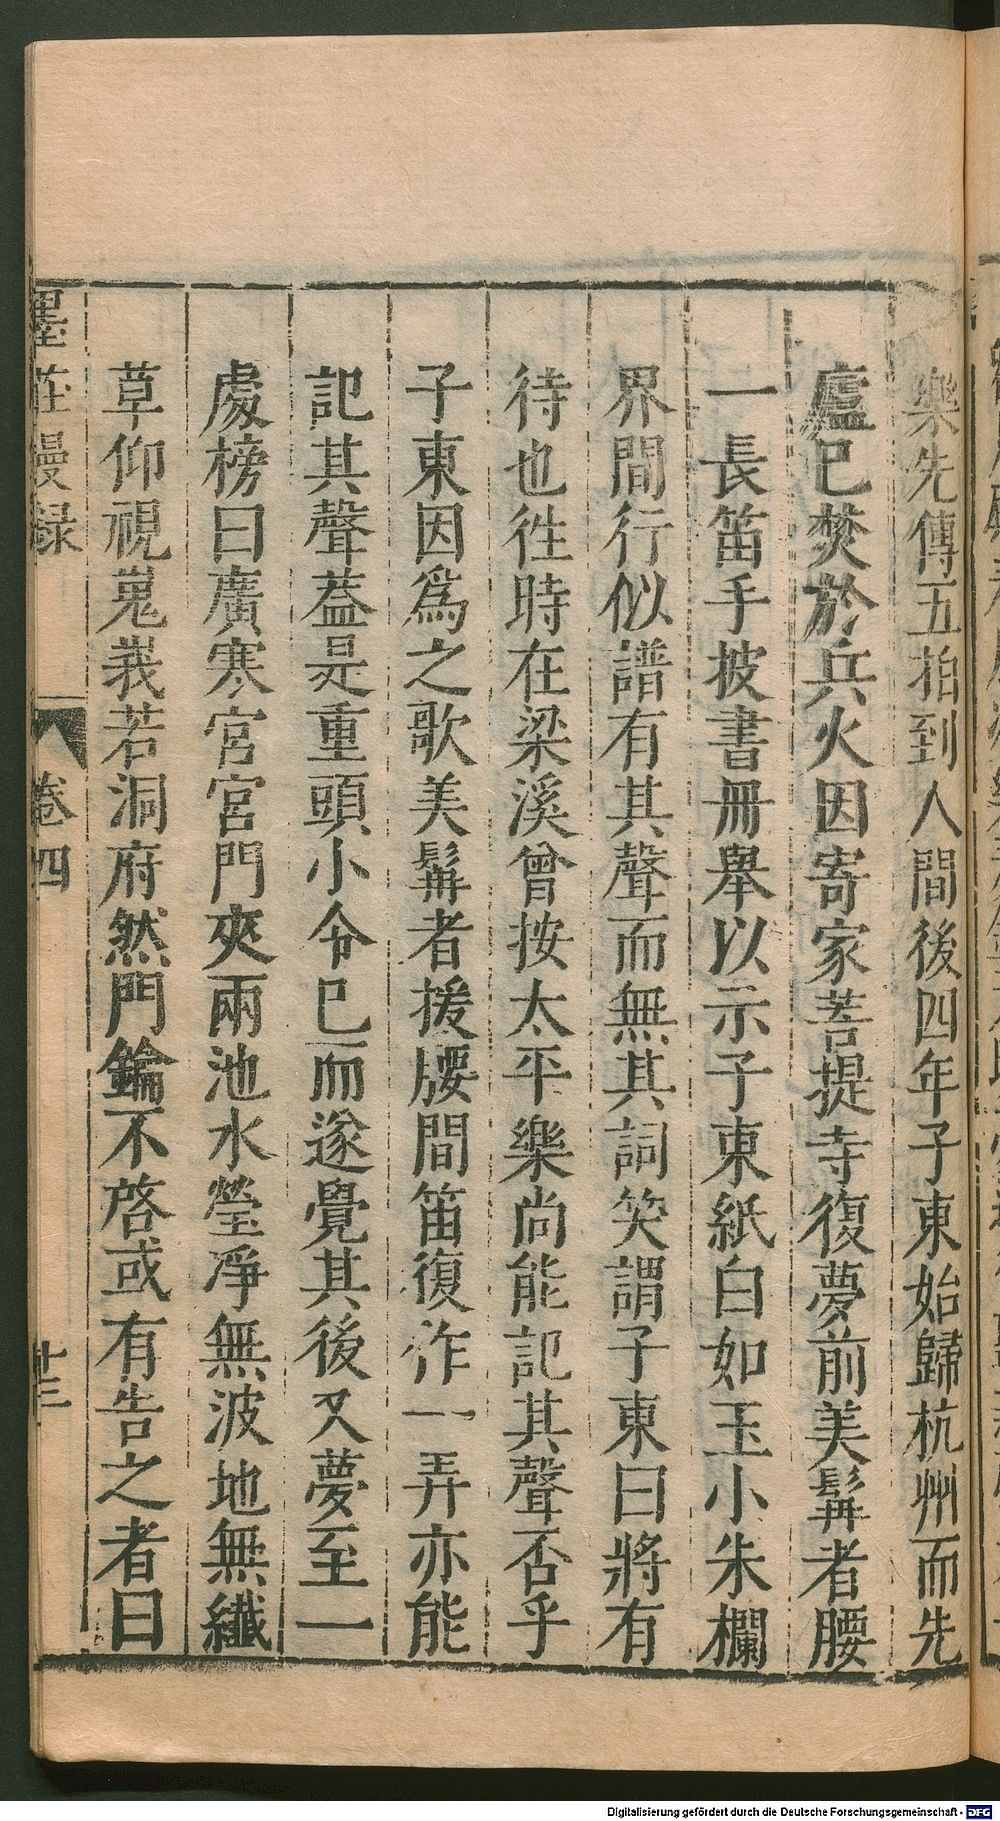 樂先傳五拍到人間後四年子東始歸杭州而先
廬已焚於兵火因寄家菩提寺復夢前美髯者腰
一長笛手披書冊舉以示子東紙白如玉小朱欄
界間行似譜有其聲而無其詞笑謂子東曰將有
待也徃時在梁溪曾按太平樂尚能記其聲否乎
子東因爲之歌美髯者援腰間笛復作一弄亦能
記其聲葢是重頭小令已而遂覺其後又夢至一
處榜曰廣寒宮宮門夾兩池水瑩凈無波地無纖
草仰視嵬峩若洞府然門鑰不啓或有告之者曰
墨莊漫録 卷四 十三
Digitalisierung gefördert durch die Deutsche Forschungsgemeinschaft - DFG